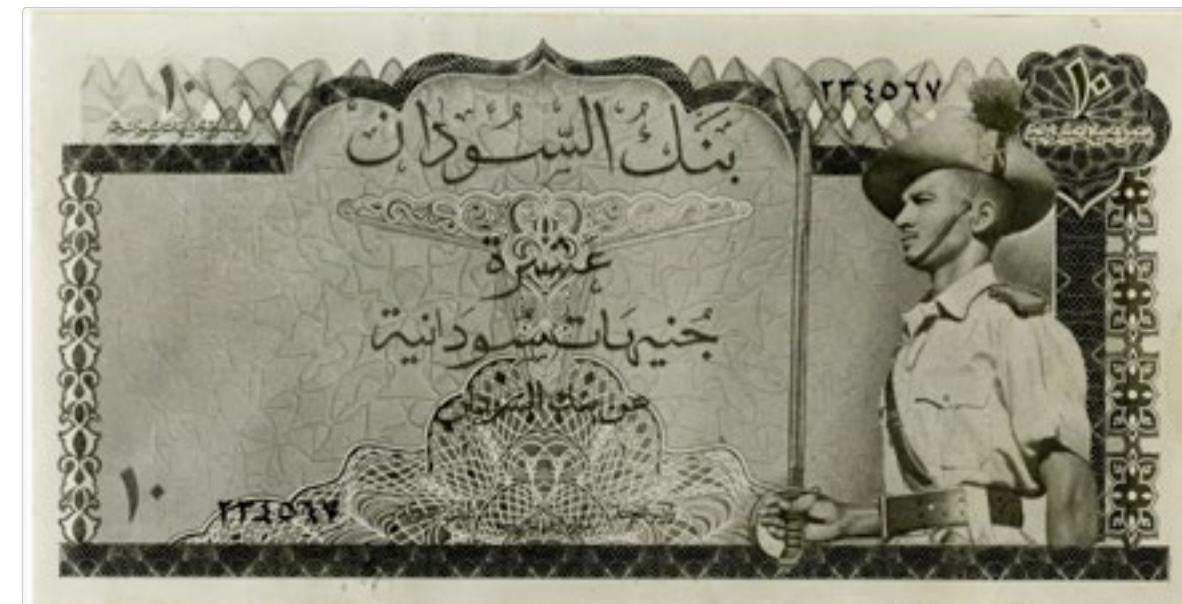 ١٠ ٢٣٤٥٦٧ ١٠
بَنكُ السُّودَان
عَشَرَة
جُنيهَات سُودَانية
عن بنك السودان
١٠ ٢٣٤٥٦٧